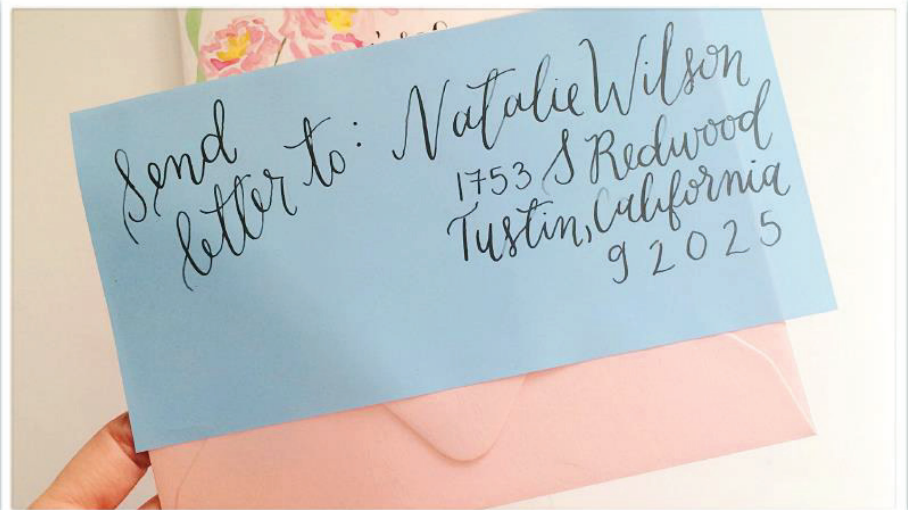 Send
letter to: Natalie Wilson
1753 S Redwood
Tustin, California
92025